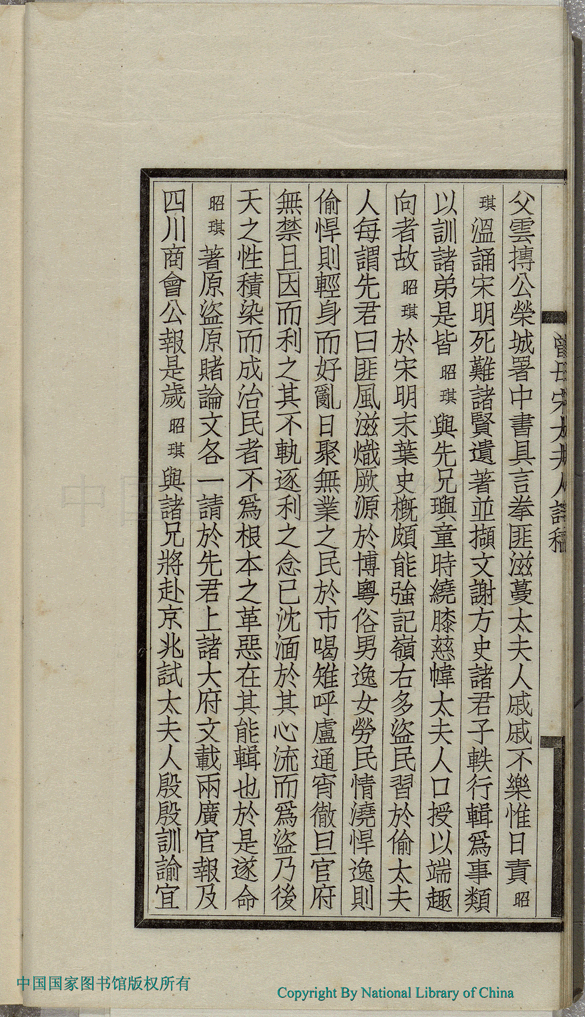 曾母宋太夫人
父雲摶公榮城署中書具言拳匪滋蔓太夫人戚戚不樂惟日責昭
琪溫誦宋明死難諸賢遺著並擷文謝方史諸君子軼行輯爲事類
以訓諸弟是皆昭琪與先兄璵童時繞膝慈幃太夫人口授以端趣
向者故昭琪於宋明末葉史概頗能強記嶺右多盜民習於偷太夫
人每謂先君曰匪風滋熾厥源於博粵俗男逸女勞民情澆悍逸則
偷悍則輕身而好亂日聚無業之民於市喝雉呼盧通宵徹旦官府
無禁且因而利之其不軌逐利之念已沈湎於其心流而爲盜乃後
天之性積染而成治民者不爲根本之革惡在其能輯也於是遂命
昭琪著原盜原賭論文各一請於先君上諸大府文載兩廣官報及
四川商會公報是歲昭琪與諸兄將赴京兆試太夫人殷殷訓諭宜
中国
中国国家图书馆版权所有
Copyright By National Library of China